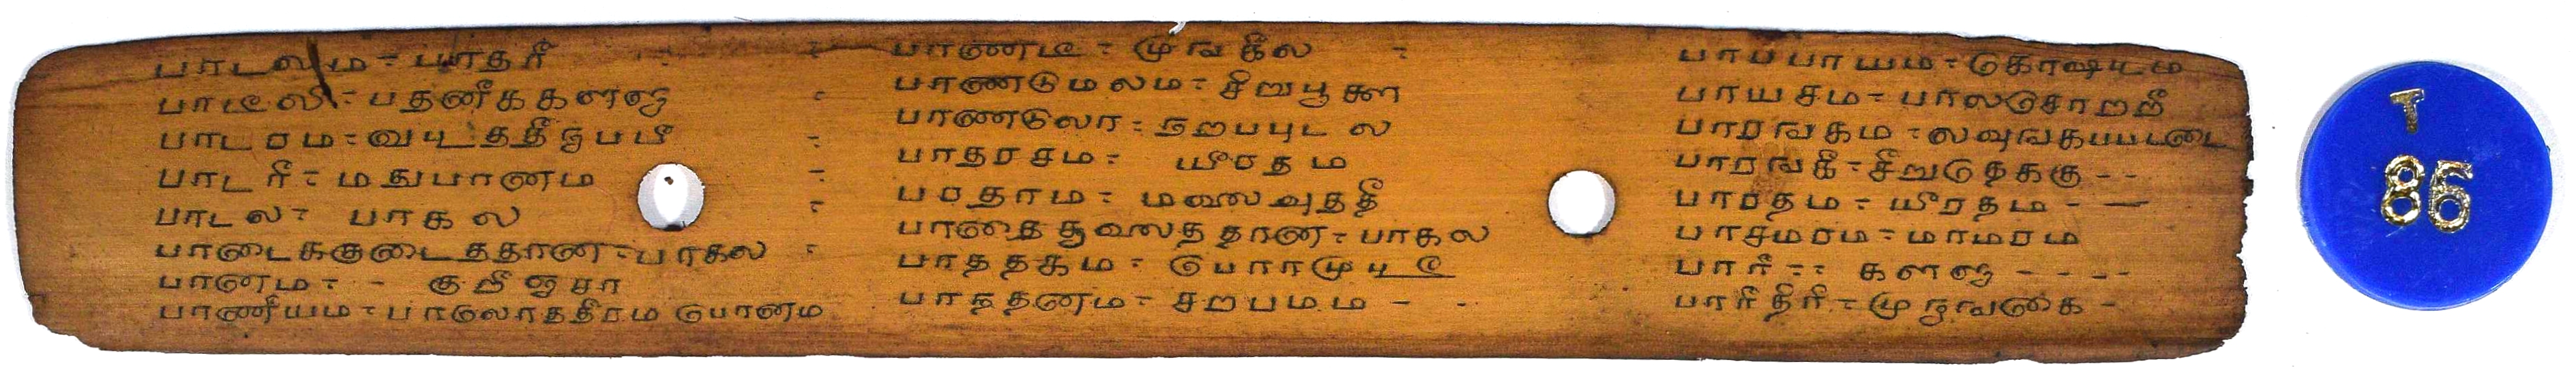 பாடலம = பாதரீ
பாடீலி = பதனீககளளு
பாடரம = வடடததீருபபீ
பாடரீ = மதுபாணம
பாடல = பாகல
பாடைககுடைததான = பாகல
பானம = - குறீஞசா
பாணீயம = பாலொததீரம பொனம
பாணடீ = முஙகீல
பாணடுமலம = சீறுபூளை
பாணடுலா = நறபபுடல
பாதரசம = யீரதம
பரதாம = மலைவுததீ
பாதைசூலைததான = பாகல
பாததகம = பொரமுடடீ
பாநதனம = சறபமம - -
பாபபாயம = கொஷடம
பாயசம = பாலசொறறீ
பாரஙகம = லவுஙகபபடடை
பாரஙகீ = சீறுதெககு - -
பாரதம = யீரதம - -
பாசமரம = மாமரம
பாரீ = களளு - - - -
பாரீதீரீ = முருஙகை -
T
86